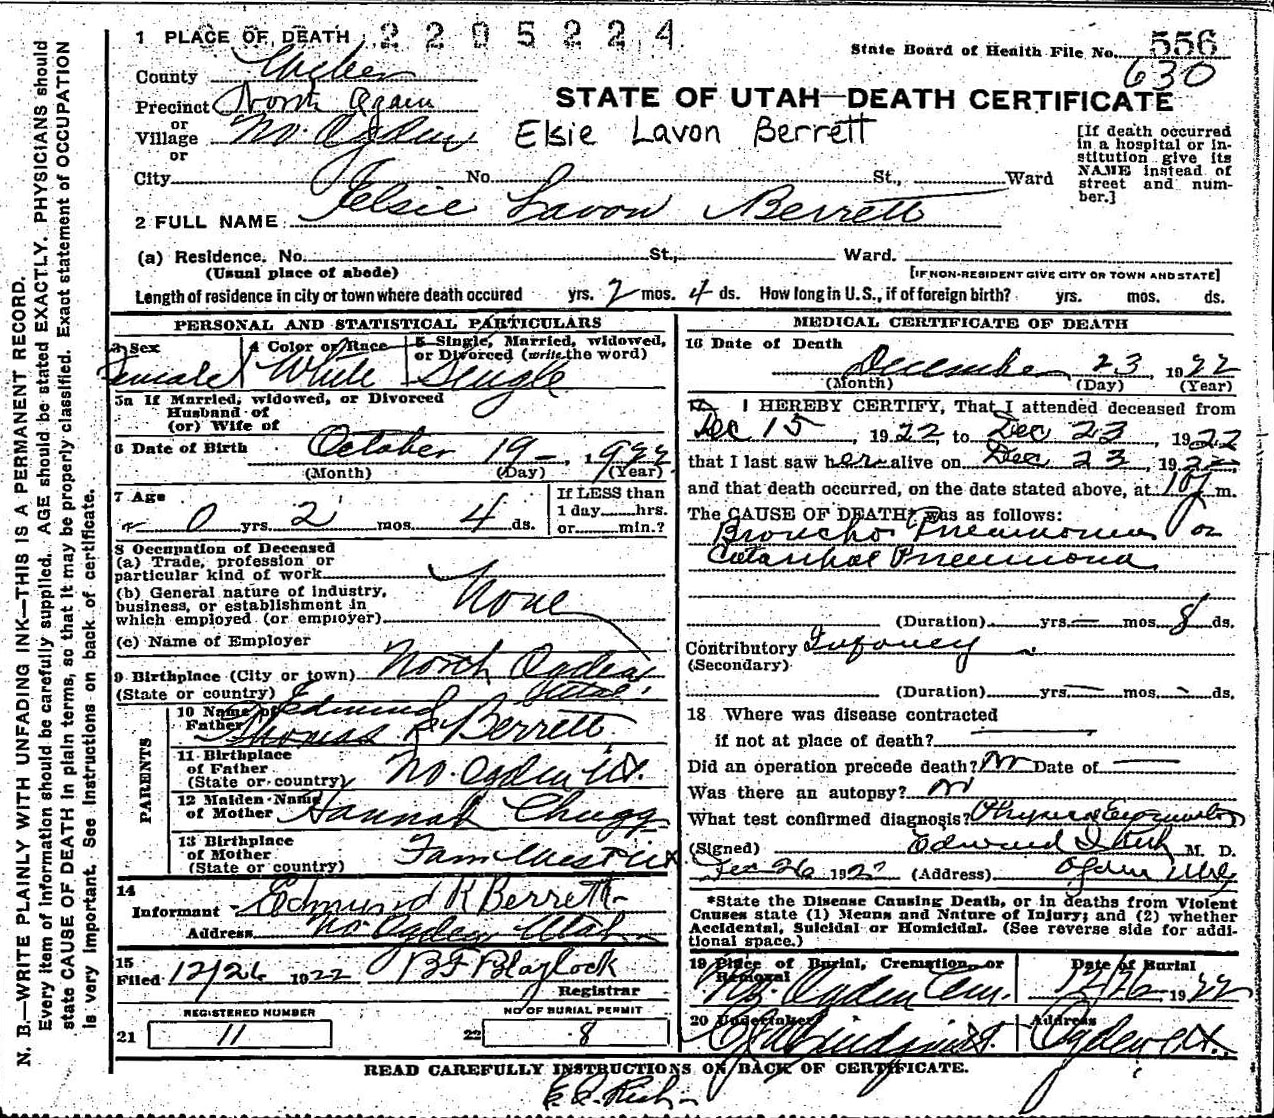 1 PLACE OF DEATH 2295224
State Board of Health File No. 556
630
County Weber
Precinct North Ogden
or
Village No. Ogden
or
STATE OF UTAH—DEATH CERTIFICATE
Elsie Lavon Berrett
[If death occurred in a hospital or institution give its NAME instead of street and number.]
City No. St., Ward
2 FULL NAME Elsie Lavon Berrett
(a) Residence. No. St., Ward.
(Usual place of abode) [IF NON-RESIDENT GIVE CITY OR TOWN AND STATE]
Length of residence in city or town where death occured yrs. 2 mos. 4 ds. How long in U.S., if of foreign birth? yrs. mos. ds.
PERSONAL AND STATISTICAL PARTICULARS
3 Sex Female
4 Color or Race White
5 Single, Married, widowed, or Divorced (write the word) Single
5a If Married, widowed, or Divorced
Husband of
(or) Wife of
6 Date of Birth October 19 1922
(Month) (Day) (Year)
7 Age 0 yrs. 2 mos. 4 ds.
If LESS than
1 day hrs.
or min.?
8 Occupation of Deceased
(a) Trade, profession or
particular kind of work
(b) General nature of industry,
business, or establishment in
which employed (or employer)
None
(c) Name of Employer
9 Birthplace (City or town) North Ogden
(State or country) Utah
PARENTS
10 Name of Father Edmund
Thomas K Berrett
11 Birthplace
of Father
(State or country) No. Ogden Ut.
12 Maiden Name
of Mother Hannah Chugg
13 Birthplace
of Mother
(State or country)
14
Informant Edmund K Berrett
Address No. Ogden Utah
15
Filed 12/26 1922 BF Blaylock
Registrar
REGISTERED NUMBER
21 11
NO OF BURIAL PERMIT
22 8
MEDICAL CERTIFICATE OF DEATH
16 Date of Death
December 23 1922
(Month) (Day) (Year)
17 I HEREBY CERTIFY, That I attended deceased from
Dec 15, 1922 to Dec 23, 1922
that I last saw her alive on Dec 23, 1922
and that death occurred, on the date stated above, at m.
The CAUSE OF DEATH* was as follows:
Broncho Pneumonia or
Catarrhal Pneumonia
(Duration) yrs. — mos. 8 ds.
Contributory Infancy
(Secondary)
(Duration) yrs. — mos. - ds.
18 Where was disease contracted
if not at place of death?
Did an operation precede death? No Date of
Was there an autopsy? No
What test confirmed diagnosis? Physical Examination
(Signed) Edward I Rich M. D.
Dec 26 1922 (Address) Ogden Utah
*State the Disease Causing Death, or in deaths from Violent
Causes state (1) Means and Nature of Injury; and (2) whether
Accidental, Suicidal or Homicidal. (See reverse side for addi-
tional space.)
19 Place of Burial, Cremation, or Removal No. Ogden Cem.
Date of Burial 12/26 1922
20 Undertaker Lindquist
Address Ogden Ut.
READ CAREFULLY INSTRUCTIONS ON BACK OF CERTIFICATE.
N. B.—WRITE PLAINLY WITH UNFADING INK—THIS IS A PERMANENT RECORD.
Every item of information should be carefully supplied. AGE should be stated EXACTLY. PHYSICIANS should
state CAUSE OF DEATH in plain terms, so that it may be properly classified. Exact statement of OCCUPATION
is very important. See instructions on back of certificate.